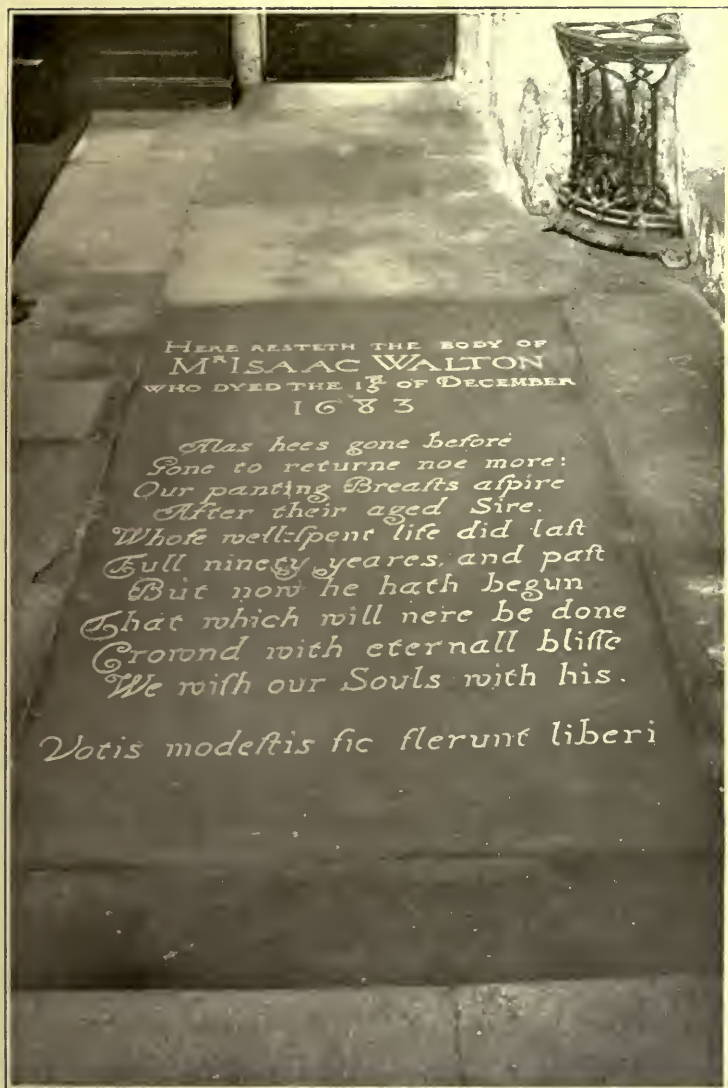 HERE RESTETH THE BODY OF
MR ISAAC WALTON
WHO DYED THE 15th OF DECEMBER
1683
Alas hees gone before
Gone to returne noe more:
Our panting Breaſts aſpire
After their aged Sire.
Whoſe well-ſpent life did laſt
Full ninety yeares, and paſt
But now he hath begun
That which will nere be done
Crownd with eternall bliſſe
We wiſh our Souls with his.
Votis modeſtis ſic flerunt liberi